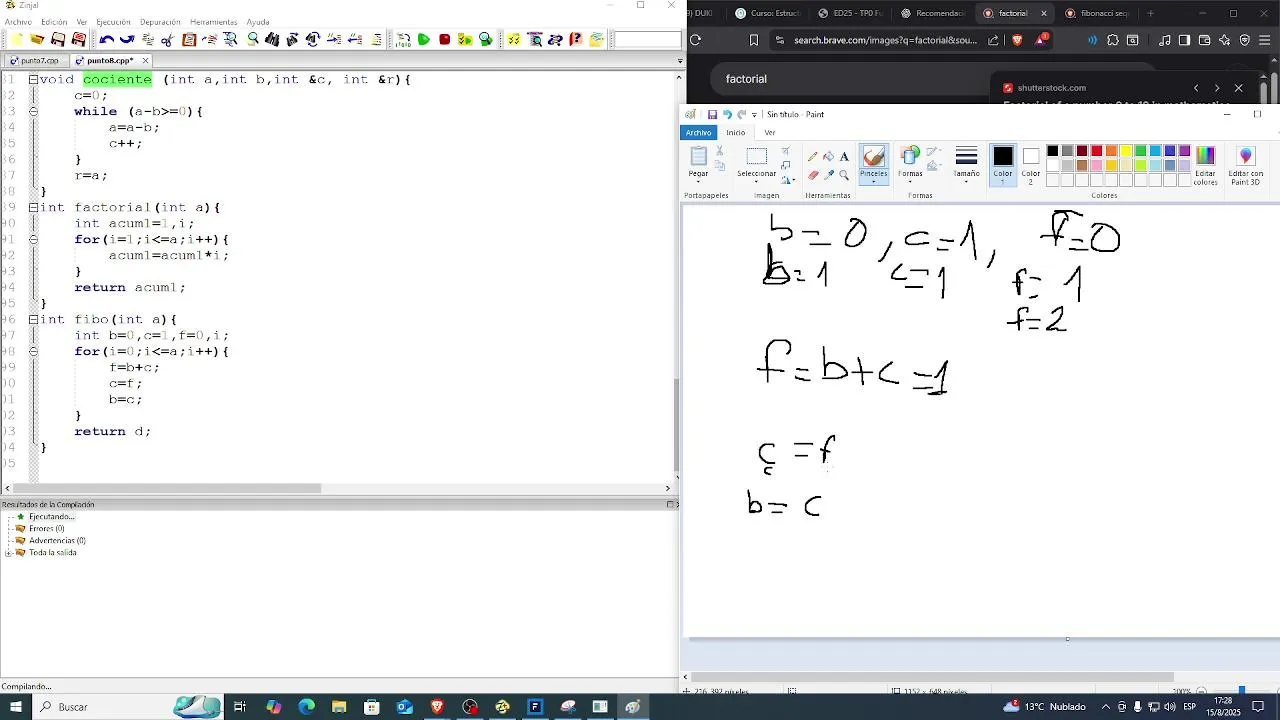 Zinjal
Archivo Edición Ver Ejecución Depuración Herramientas Ayuda
punto7.cpp punto8.cpp*
31 void cociente (int a,int b,int &c, int &r){
32 c=0;
33 while (a-b>=0){
34 a=a-b;
35 c++;
36 }
37 r=a;
38 }
39 int factorial(int a){
90 int acuml=1,i;
91 for(i=1;i<=a;i++){
92 acuml=acuml*i;
93 }
94 return acuml;
95 }
96 int fibo(int a){
97 int b=0,c=1,f=0,i;
98 for(i=0;i<=a;i++){
99 f=b+c;
00 c=f;
01 b=c;
02 }
03 return d;
04 }
05
Resultados de la Compilación
Ejecutando...
Errores (0)
Advertencias (0)
Toda la salida
Compilando...
9) DUKI Curso: Estruct ED25 - TP0 Fu Recomendac factorial fibonacc
search.brave.com/images?q=factorial&sou...
factorial
shutterstock.com
Factorial of a number 0 to 10 in mathematics
Sin título - Paint
Archivo Inicio Ver
Pegar Seleccionar Pinceles Formas Tamaño Color 1 Color 2 Editar colores Editar con Paint 3D
Portapapeles Imagen Herramientas Formas Colores
b=0, c=1, f=0
b=1 c=1 f=1
f=2
f=b+c=1
c=f
b=c
216, 392 píxeles 1152 × 648 píxeles 100%
Buscar
13°C Nublado ESP 17:28
15/8/2025